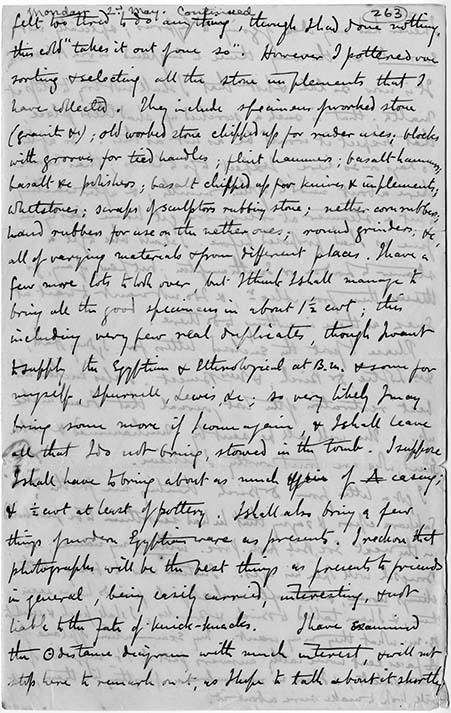 Monday 2nd May. Continued 263
felt too tired to do anything, though I had done nothing,
this cold "takes it out of one so". However I pottered over
sorting & selecting all the stone implements that I
have collected. They include specimens of worked stone
(granit &c); old worked stone chipped up for ruder uses; blocks
with grooves for tied handles; flint hammers; basalt hammers,
basalt &c polishers; basalt chipped up for knives & implements;
whetstones; scraps of sculptors rubbing stone; nether corn rubbers,
hand rubbers for use on the nether ones; round grinders; &c,
all of varying materials & from different places. I have a
few more lots to look over, but I think I shall manage to
bring all the good specimens in about 1½ cwt; this
including very few real duplicates, though I want
to supply the Egyptian & Ethnological at B.M. & some for
myself, Spurrell, Lewis &c; so very likely I may
bring some more if I come again, & I shall leave
all that I do not bring, stowed in the tomb. I suppose
I shall have to bring about as much of casing;
& ½ cwt at least of pottery. I shall also bring a few
things of modern Egyptian ware as presents. I reckon that
photographs will be the best things as presents to friends
in general, being easily carried, interesting, & not
liable to the fate of knick-knacks. I have examined
the ʘ distance diagram with much interest, & will not
stop here to remark on it, as I hope to talk about it shortly